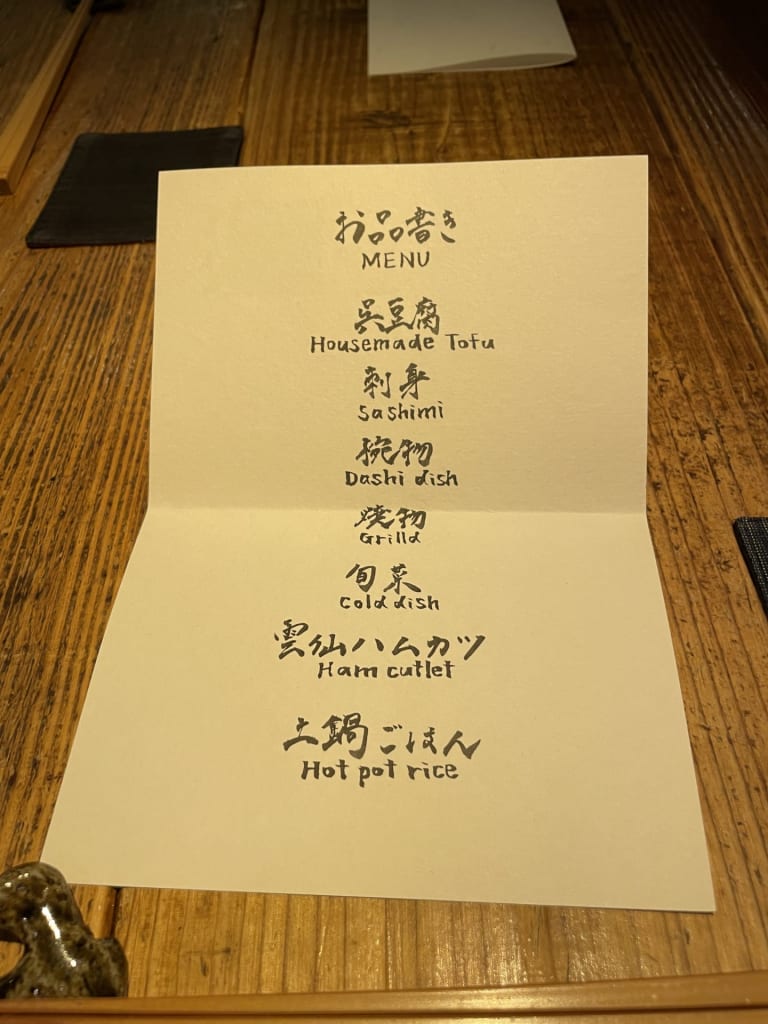 お品書き
MENU
呉豆腐
Housemade Tofu
刺身
Sashimi
椀物
Dashi dish
焼物
Grilld
旬菜
Cold dish
雲仙ハムカツ
Ham cutlet
土鍋ごはん
Hot pot rice